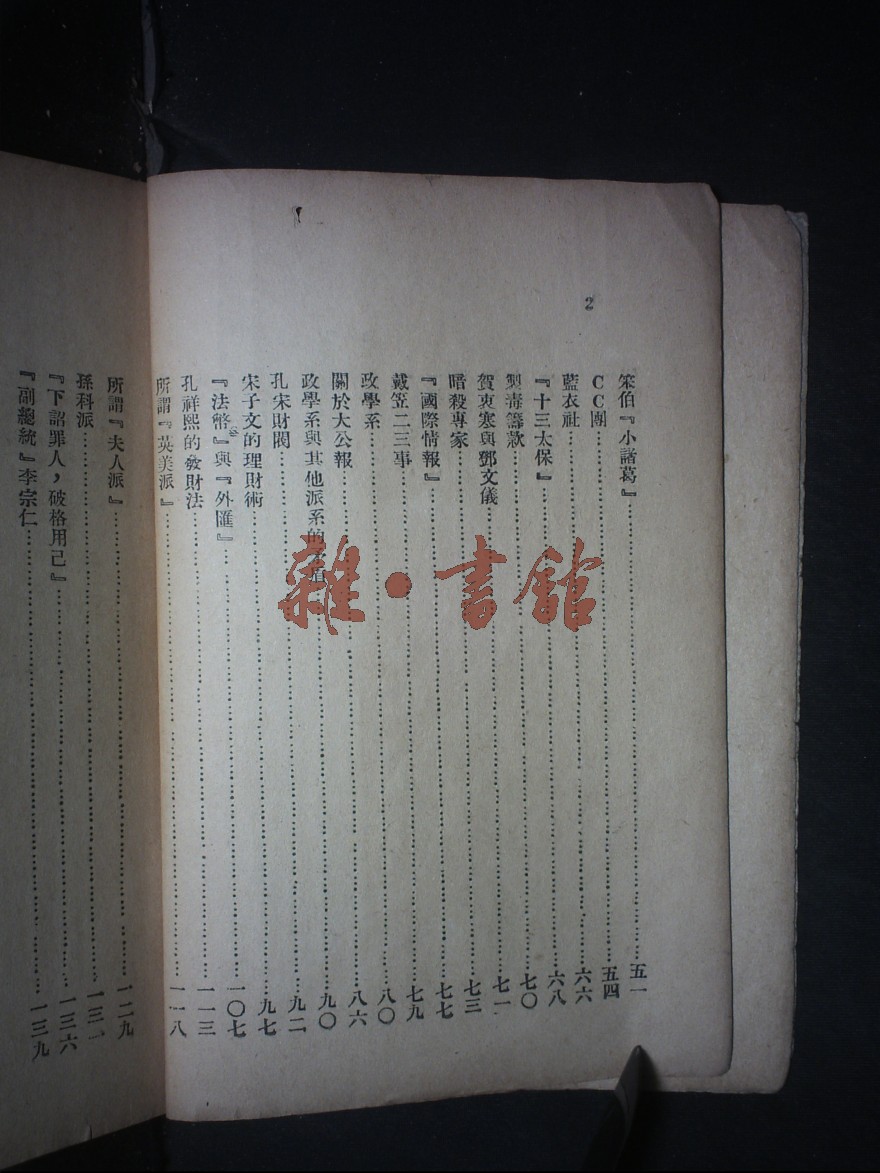 2
笨伯『小諸葛』……五一
CC團……五四
藍衣社……六六
『十三太保』……六八
製毒籌款……七〇
賀衷寒與鄧文儀……七一
暗殺專家……七三
『國際情報』……七七
戴笠二三事……七九
政學系……八〇
關於大公報……八六
政學系與其他派系的……九〇
孔宋財閥……九二
宋子文的理財術……九七
『法幣』與『外匯』……一〇七
孔祥熙的發財法……一一三
所謂『英美派』……一一八
所謂『夫人派』……一二九
孫科派……一三一
『下詔罪人，破格用己』……一三六
『副總統』李宗仁……一三九
雜·書館